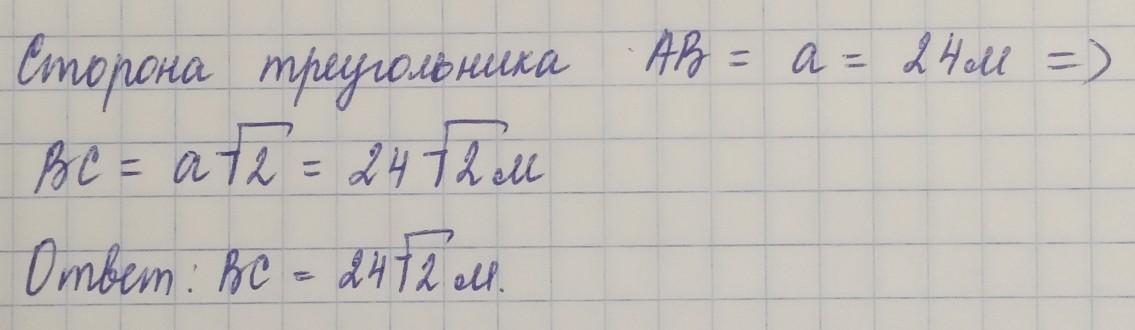 Сторона треугольника AB = a = 24м =>
BC = a√2 = 24√2 м
Ответ: BC = 24√2 м.